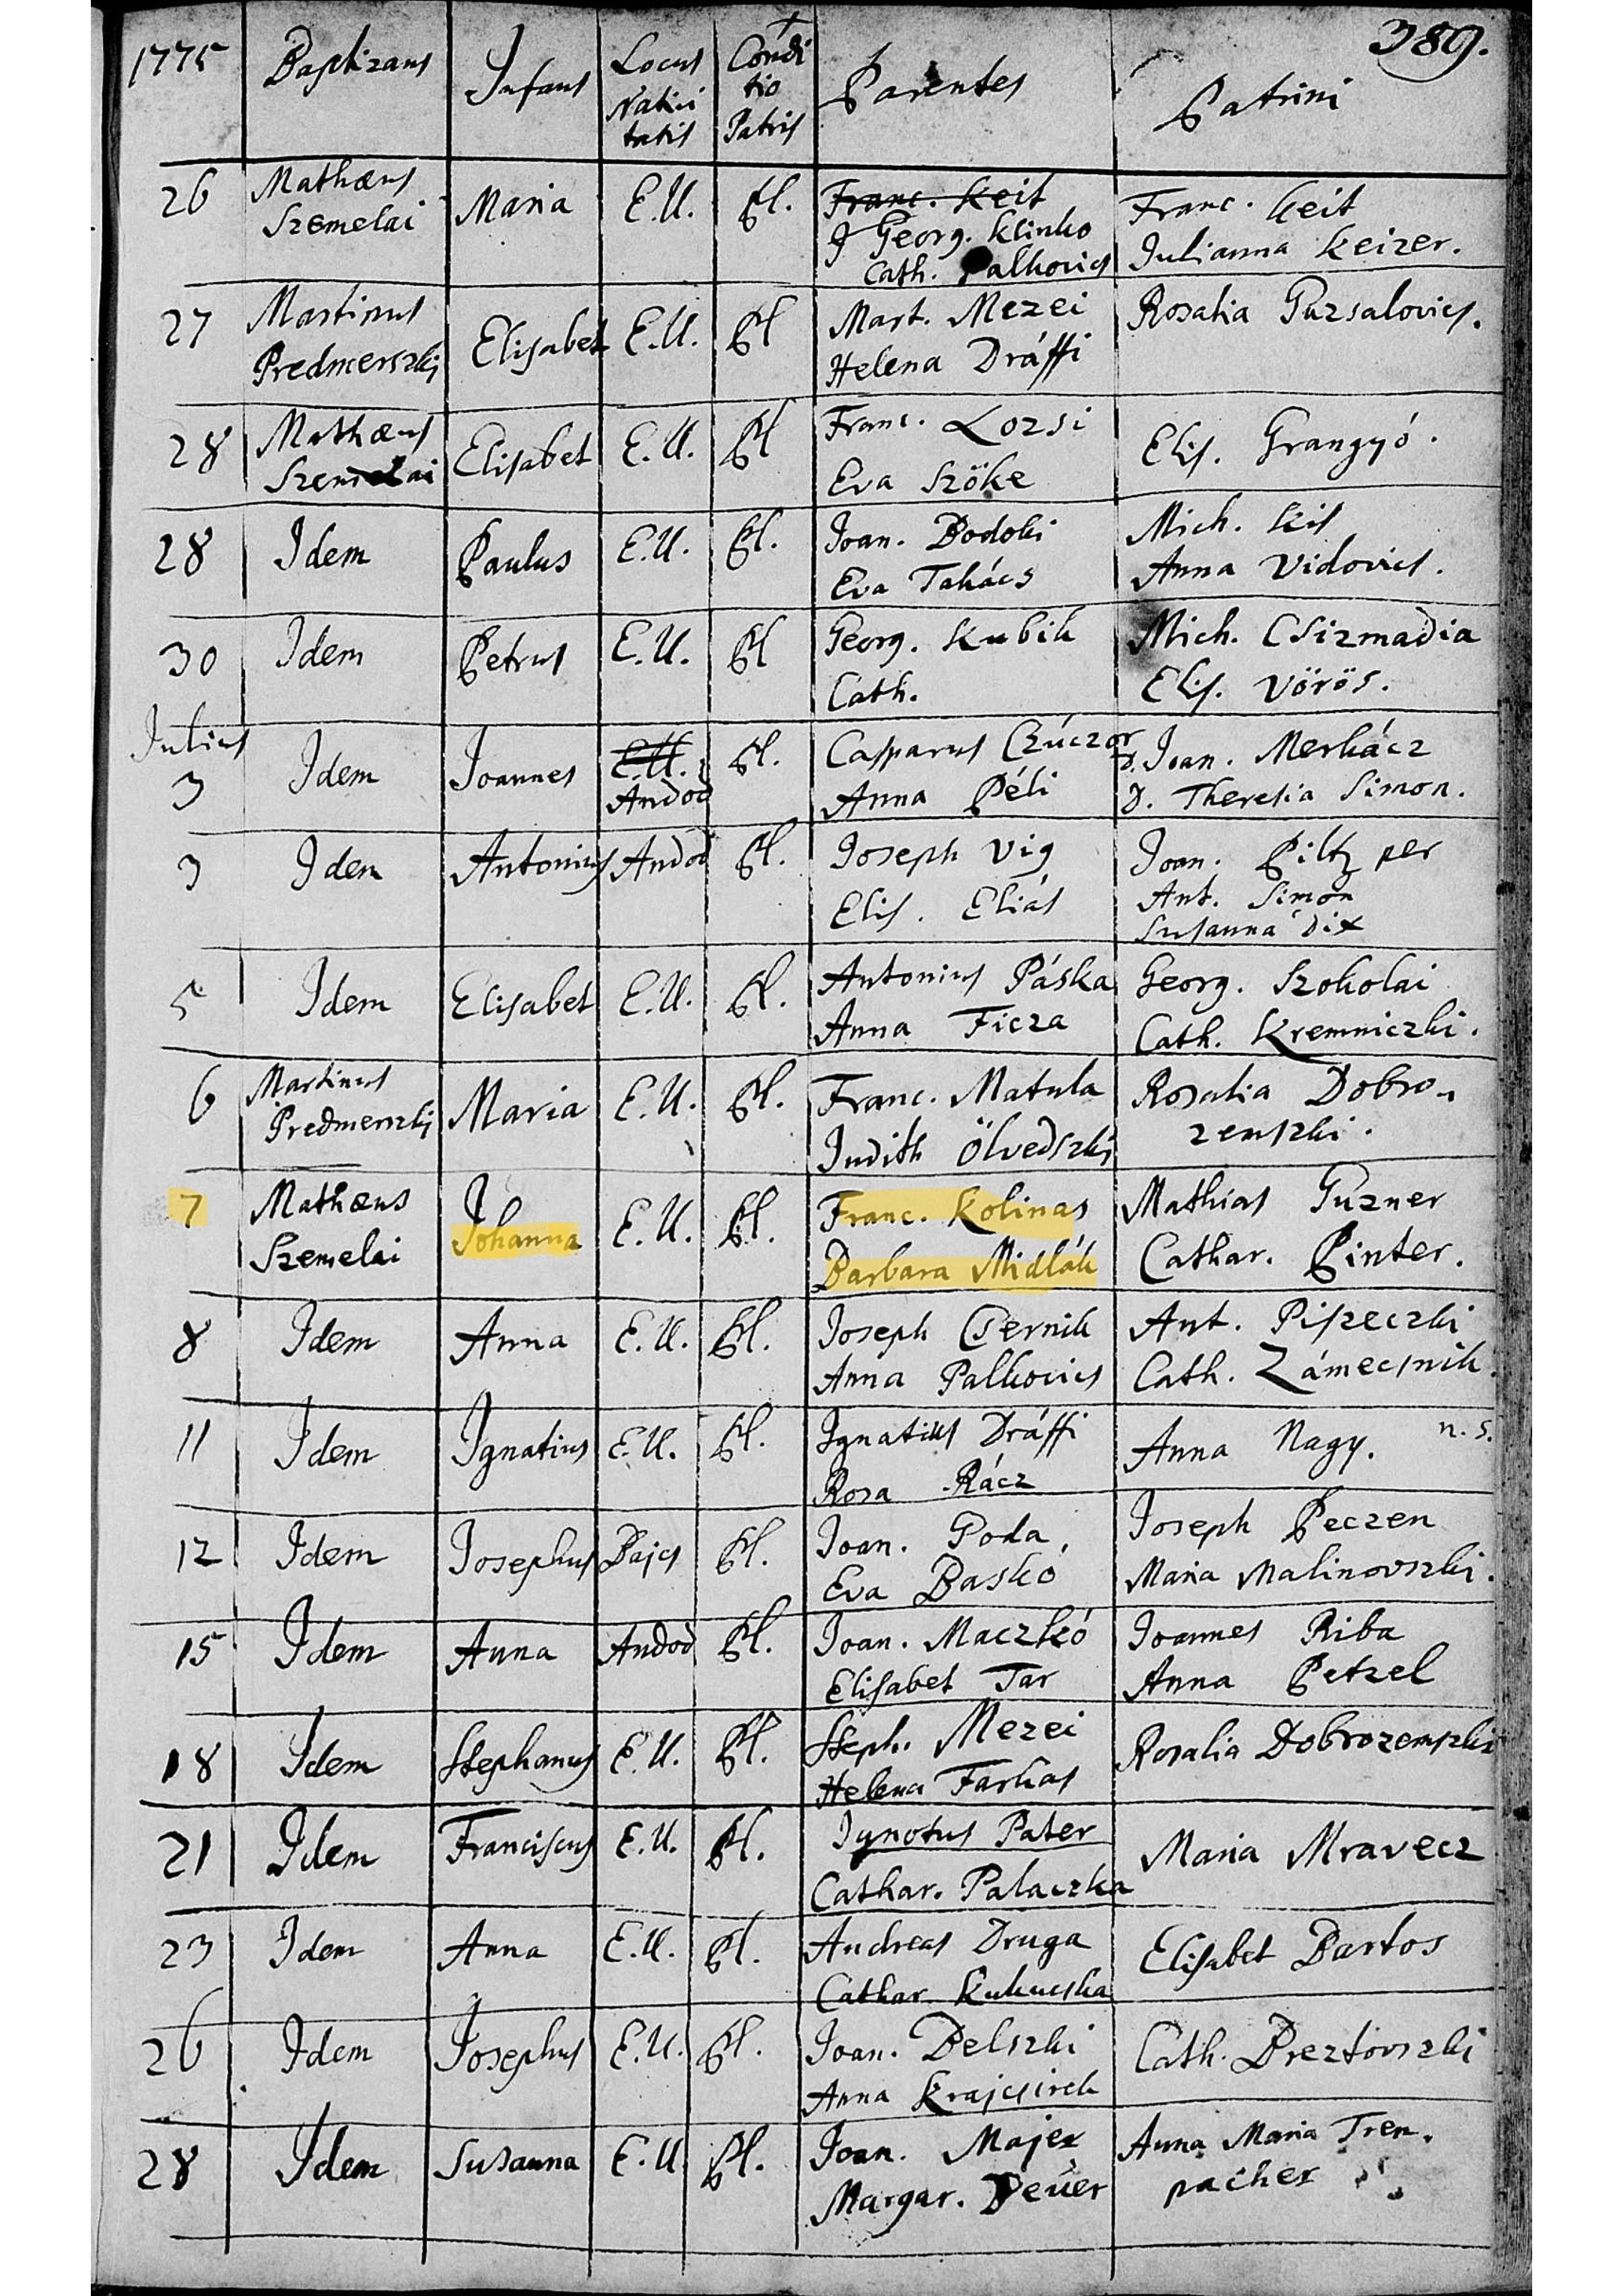 1775 Baptizans Infans Locus Nativi tatis Condi tio Patris Parentes Patrini 389.
26 Mathæus Szemelai Maria E.U. Pl. Franc. Keit Franc. Keit
J Georg. Klinko Julianna Keizer.
Cath. Palkovics
27 Martinus Predmerszki Elisabet E.U. Pl Mart. Mezei Rosalia Guzsalovics.
Helena Dráffi
28 Mathæus Szemelai Elisabet E.U. Pl Franc. Lozsi Elis. Grangyó.
Eva Szöke
28 Idem Paulus E.U. Pl. Joan. Dodoki Mich. Kis
Eva Takács Anna Vidovics.
30 Idem Petrus E.U. Pl Georg. Kubik Mich. Csizmadia
Cath. Elis. Vörös.
Julius
3 Idem Joannes E.U. Andod Pl. Casparus Czúczor D. Joan. Merkácz
Anna Péli D. Theresia Simon.
3 Idem Antonius Andod Pl. Joseph Vig Joan. Piltz per
Elis. Eliás Ant. Simon
Susanna Dix
5 Idem Elisabet E.U. Pl. Antonius Páska Georg. Szokolai
Anna Ficza Cath. Kremniczki.
6 Martinus Predmerszki Maria E.U. Pl. Franc. Matula Rosalia Dobro-
Judith Ölvedszki zemszki.
7 Mathæus Szemelai Johanna E.U. Pl. Franc. Kolinas Mathias Guzner
Barbara Midlák Cathar. Pinter.
8 Idem Anna E.U. Pl. Joseph Csernik Ant. Piszeczki
Anna Palkovics Cath. Zámecsnik.
11 Idem Ignatius E.U. Pl. Ignatius Dráffi Anna Nagy. n. s.
Rosa Rácz
12 Idem Josephus Bajcs Pl. Joan. Goda, Joseph Peczen
Eva Baskó Maria Malinovszki.
15 Idem Anna Andod Pl. Joan. Maczkó Joannes Riba
Elisabet Tar Anna Petzel
18 Idem Stephanus E.U. Pl. Steph. Mezei Rosalia Dobrozemszki
Helena Farkas
21 Idem Franciscus E.U. Pl. Ignotus Pater Maria Mravecz
Cathar. Palaczka
23 Idem Anna E.U. Pl. Andreas Druga Elisabet Bartos
Cathar Kukucska
26 Idem Josephus E.U. Pl. Joan. Belszki Cath. Breztovszki
Anna Krajcsirek
28 Idem Susanna E.U Pl. Joan. Majer Anna Maria Tren.
Margar. Deüer pacher